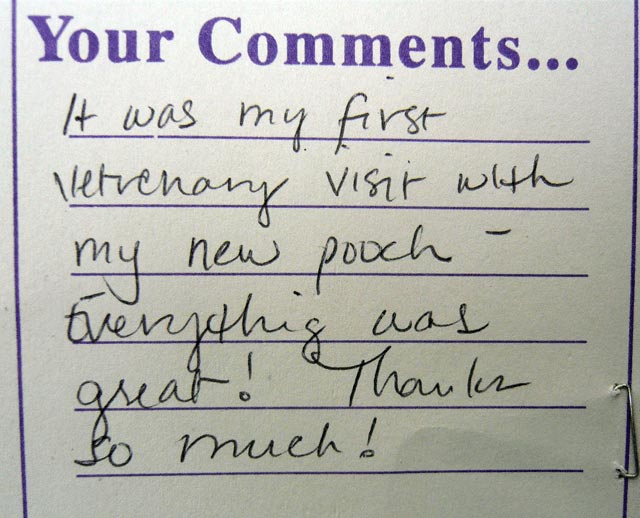 Your Comments...
It was my first
vetrenary visit with
my new pooch -
Everything was
great! Thanks
so much!